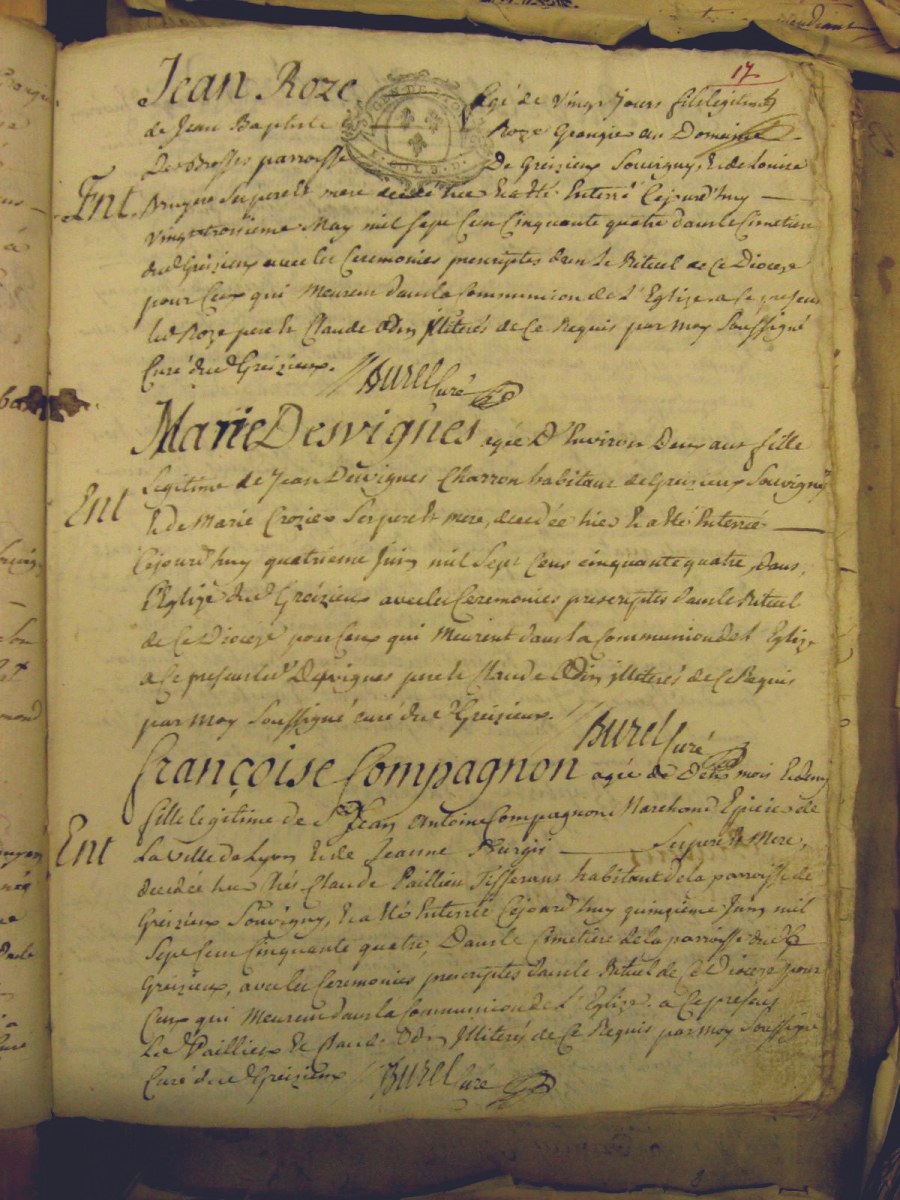 17
Jean Roze agé de vingt Jours fils legitime
de Jean Baptiste Roze Grangier au Domaine
parroisse De Greizieux Souvigny, & de Louise
Ent. Ses pere et mere decedé hier & a eté Enterré Cejourd'huy
vingttroisieme May mil sept Cent Cinquante quatre dans le Cimetiere
dud Greizieux avec les Ceremonies prescriptes dans le Rituel de Ce Dioceze
pour Ceux qui Meurent dans la Communion de L'Eglise. a Ce presens
led Roze pere & Claude Odin illiterés de Ce Requis par moy Soussigné
Curé dud Greizieux. Burel Curé
Marie Desvignes agée D'Environ Deux ans fille
Legitime de Jean Desvignes Charron habitant de Greizieux Souvigny
Ent & de Marie Crozier Ses pere & mere, decedée hier & a eté Enterrée
Cejourd'huy quatrieme Juin mil Sept Cens cinquante quatre, dans
l'Eglize dud Greizieux avec les Ceremonies prescriptes dans le Rituel
de Ce Dioceze pour Ceux qui Meurent dans la Communion de L'Eglize
a Ce presens led Desvignes pere & Claude Odin illiterés de Ce Requis
par moy Soussigné curé dud Greizieux. Burel Curé
Françoise Compagnon agée de Deux mois & demy
fille legitime de Sr Jean Antoine Compagnon Marchand Epicier de
Ent La ville de Lyon & de Jeanne Ses pere & Mere,
decedée hier Chés Claude Paillieu Tisserans habitant de la parroisse de
Greizieux Souvigny, & a eté Enterrée Cejourd'huy quinzieme Juin mil
Sept Cent Cinquante quatre, Dans le Cimetière de la parroisse dud
Greizieux, avec les Ceremonies prescriptes dans le Rituel de Ce Dioceze pour
Ceux qui Meurent dans la Communion de L'Eglize. a Ce presens
Led Paillieu & Claude Odin Illiterés de Ce Requis par moy Soussigné
Curé dud Greizieux Burel Curé